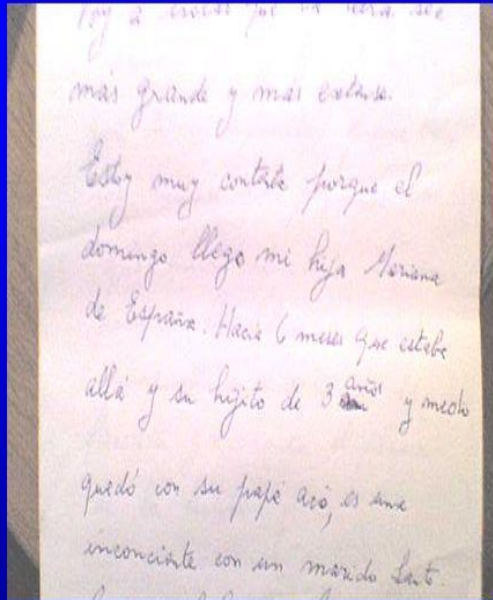 Voy a que la letra sea
más grande y más extensa.
Estoy muy contenta porque el
domingo llego mi hija Mariana
de España. Hacía 6 meses que estaba
allá y su hijito de 3 años y medio
quedó con su papá acá, es una
inconciente con un marido Santo.